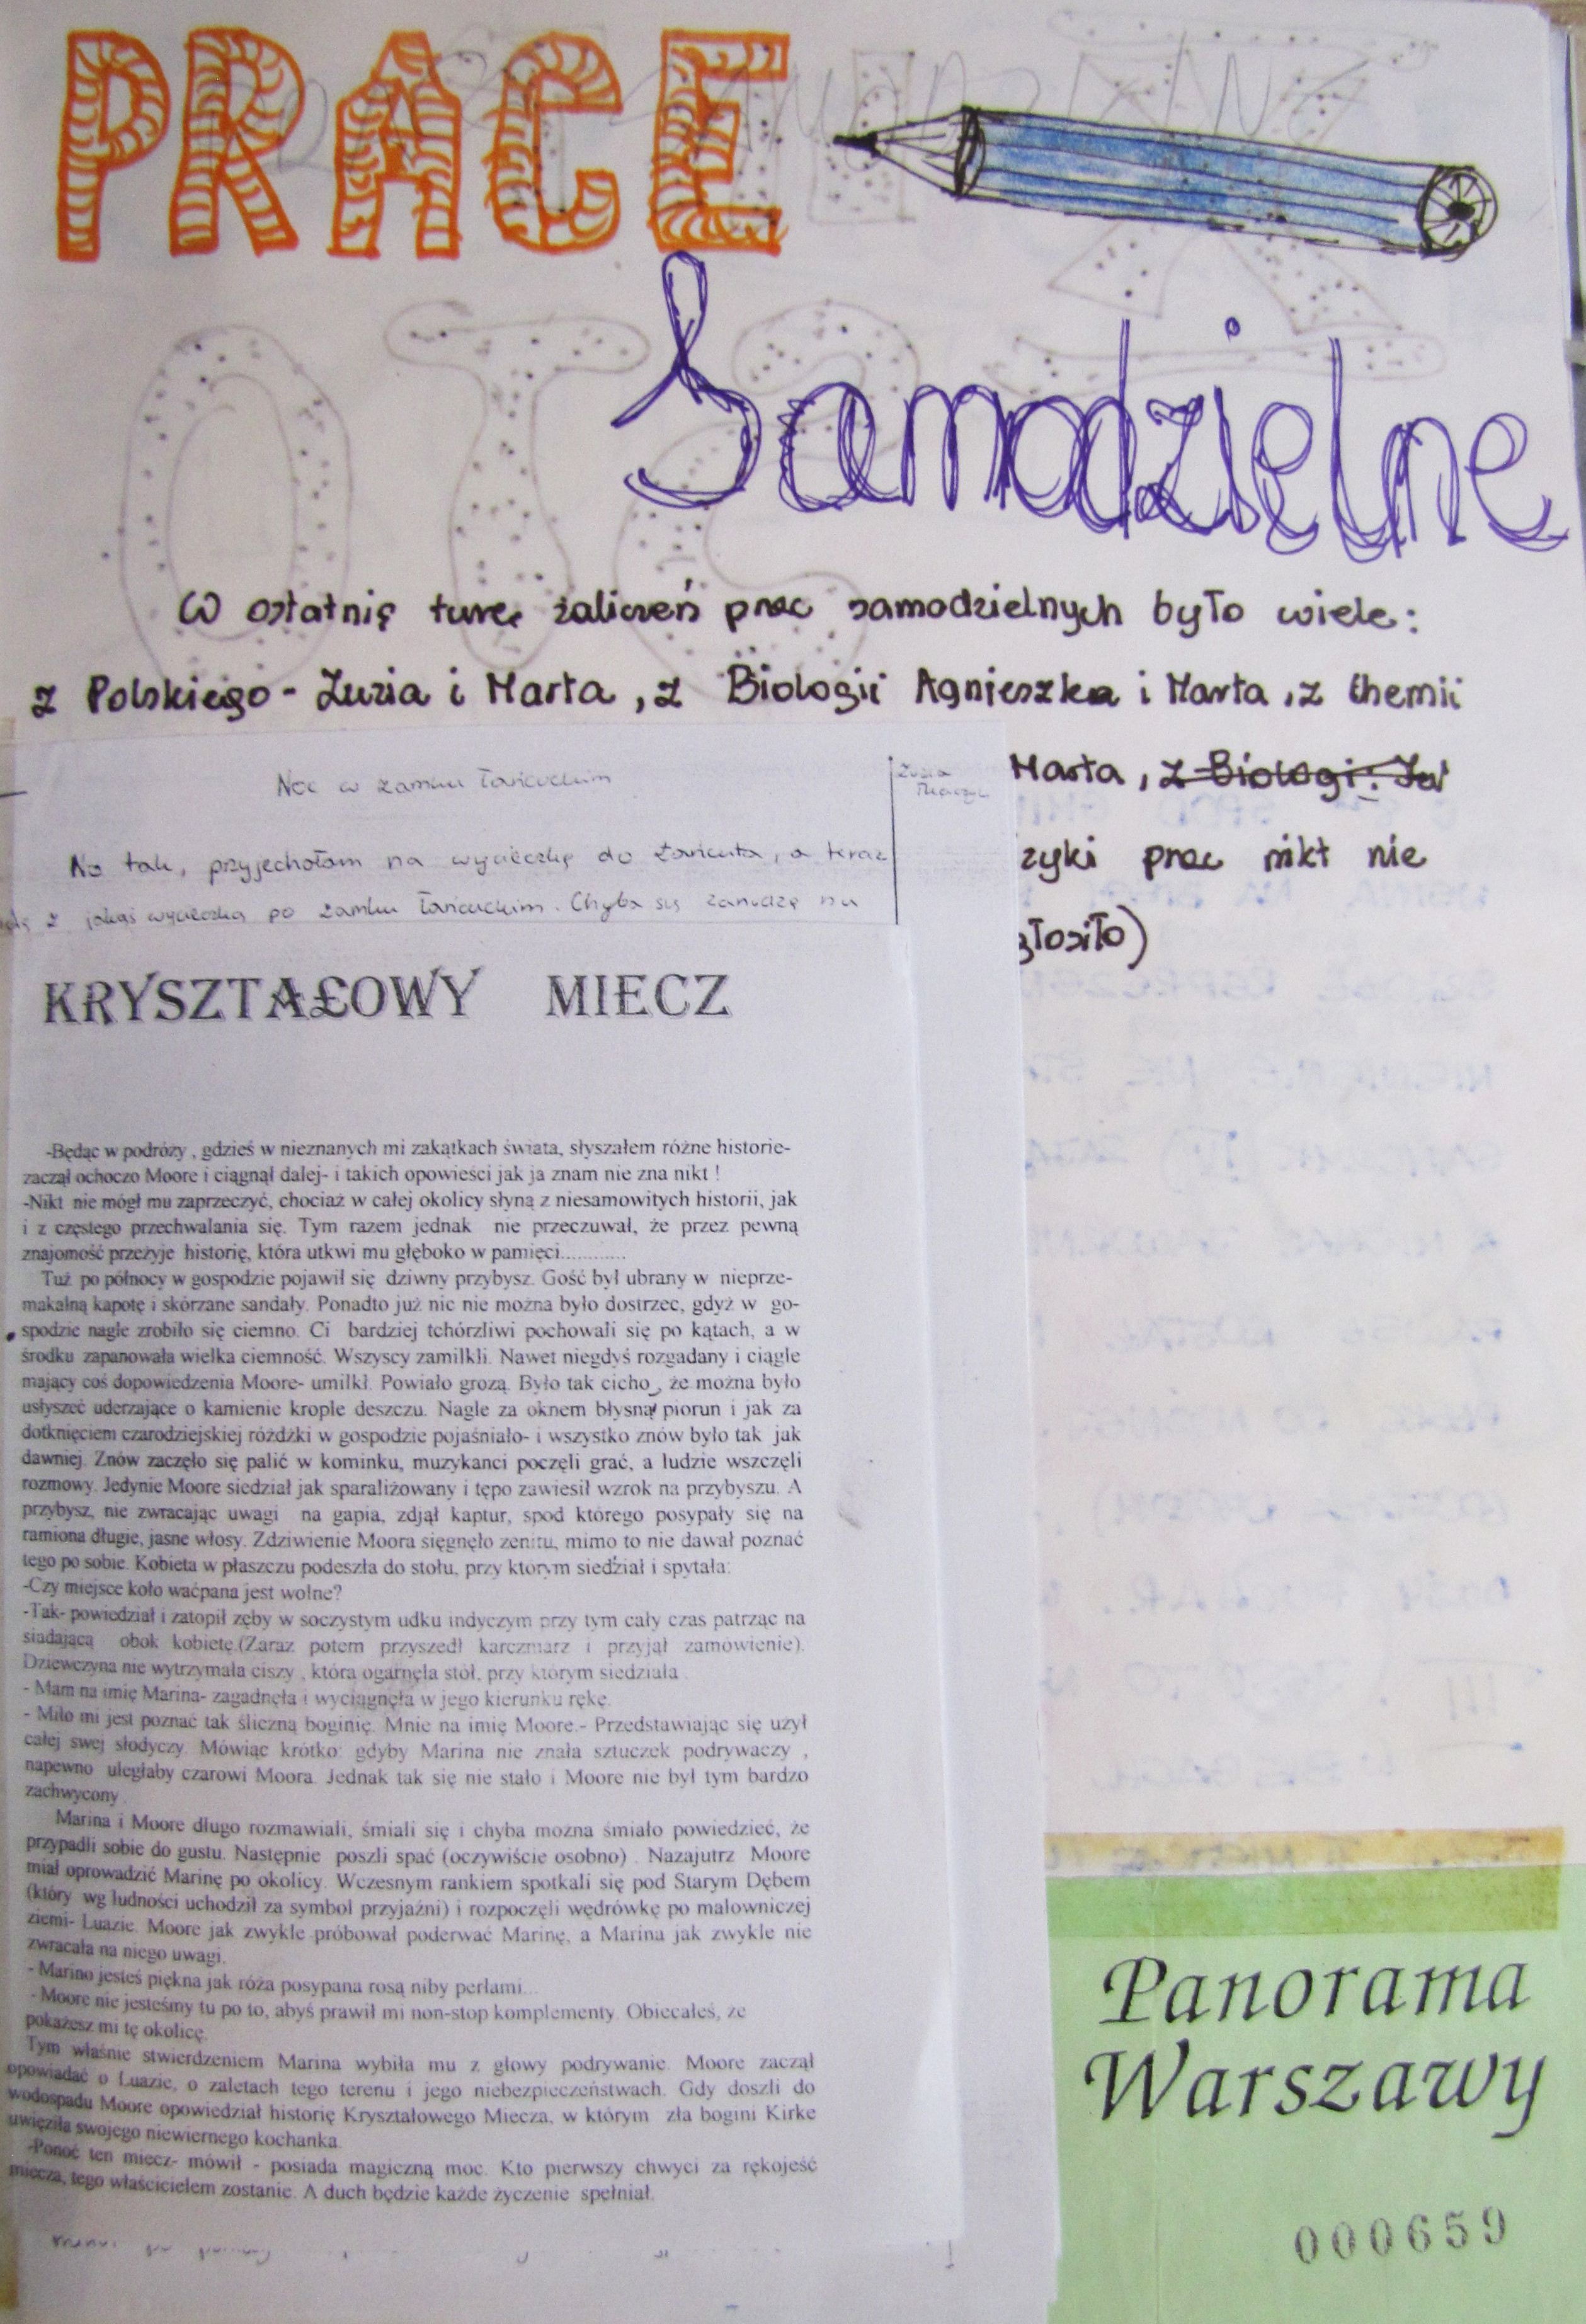 PRACE
Samodzielne
W ostatnię turę zaliczeń prac samodzielnych było wiele:
z Polskiego - Zuzia i Marta, z Biologii Agnieszka i Marta, z Chemii
Marta, z Biologi: Ja
zyki prac nikt nie
głosiło)
Noc w zamku łańcuckim
Zuzia
No tak, przyjechałam na wycieczkę do Łańcuta, a teraz
z jakąś wycieczką po zamku łańcuckim. Chyba się zanudzę na
KRYSZTA£OWY MIECZ
-Będąc w podróży , gdzieś w nieznanych mi zakątkach świata, słyszałem różne historie-
zaczął ochoczo Moore i ciągnął dalej- i takich opowieści jak ja znam nie zna nikt !
-Nikt nie mógł mu zaprzeczyć, chociaż w całej okolicy słyną z niesamowitych historii, jak
i z częstego przechwalania się. Tym razem jednak nie przeczuwał, że przez pewną
znajomość przeżyje historię, która utkwi mu głęboko w pamięci............
Tuż po północy w gospodzie pojawił się dziwny przybysz. Gość był ubrany w nieprze-
makalną kapotę i skórzane sandały. Ponadto już nic nie można było dostrzec, gdyż w go-
spodzie nagle zrobiło się ciemno. Ci bardziej tchórzliwi pochowali się po kątach, a w
środku zapanowała wielka ciemność. Wszyscy zamilkli. Nawet niegdyś rozgadany i ciągle
mający coś dopowiedzenia Moore- umilkł. Powiało grozą. Było tak cicho , że można było
usłyszeć uderzające o kamienie krople deszczu. Nagle za oknem błysnął piorun i jak za
dotknięciem czarodziejskiej różdżki w gospodzie pojaśniało- i wszystko znów było tak jak
dawniej. Znów zaczęło się palić w kominku, muzykanci poczęli grać, a ludzie wszczęli
rozmowy. Jedynie Moore siedział jak sparaliżowany i tępo zawiesił wzrok na przybyszu. A
przybysz, nie zwracając uwagi na gapia, zdjął kaptur, spod którego posypały się na
ramiona długie, jasne włosy. Zdziwienie Moora sięgnęło zenitu, mimo to nie dawał poznać
tego po sobie. Kobieta w płaszczu podeszła do stołu, przy którym siedział i spytała:
-Czy miejsce koło waćpana jest wolne?
-Tak- powiedział i zatopił zęby w soczystym udku indyczym przy tym cały czas patrząc na
siadającą obok kobietę.(Zaraz potem przyszedł karczmarz i przyjął zamówienie).
Dziewczyna nie wytrzymała ciszy , która ogarnęła stół, przy którym siedziała .
- Mam na imię Marina- zagadnęła i wyciągnęła w jego kierunku rękę.
- Miło mi jest poznać tak śliczną boginię. Mnie na imię Moore.- Przedstawiając się użył
całej swej słodyczy. Mówiąc krótko: gdyby Marina nie znała sztuczek podrywaczy ,
napewno uległaby czarowi Moora. Jednak tak się nie stało i Moore nie był tym bardzo
zachwycony .
Marina i Moore długo rozmawiali, śmiali się i chyba można śmiało powiedzieć, że
przypadli sobie do gustu. Następnie poszli spać (oczywiście osobno) . Nazajutrz Moore
miał oprowadzić Marinę po okolicy. Wczesnym rankiem spotkali się pod Starym Dębem
(który wg ludności uchodził za symbol przyjaźni) i rozpoczęli wędrówkę po malowniczej
ziemi- Luazie. Moore jak zwykle próbował poderwać Marinę, a Marina jak zwykle nie
zwracała na niego uwagi.
- Marino jesteś piękna jak róża posypana rosą niby perłami...
- Moore nie jesteśmy tu po to, abyś prawił mi non-stop komplementy. Obiecałeś, że
pokażesz mi tę okolicę.
Tym właśnie stwierdzeniem Marina wybiła mu z głowy podrywanie. Moore zaczął
opowiadać o Luazie, o zaletach tego terenu i jego niebezpieczeństwach. Gdy doszli do
wodospadu Moore opowiedział historię Kryształowego Miecza, w którym zła bogini Kirke
uwięziła swojego niewiernego kochanka.
-Ponoć ten miecz- mówił - posiada magiczną moc. Kto pierwszy chwyci za rękojeść
miecza, tego właścicielem zostanie. A duch będzie każde życzenie spełniał.
Panorama
Warszawy
000659